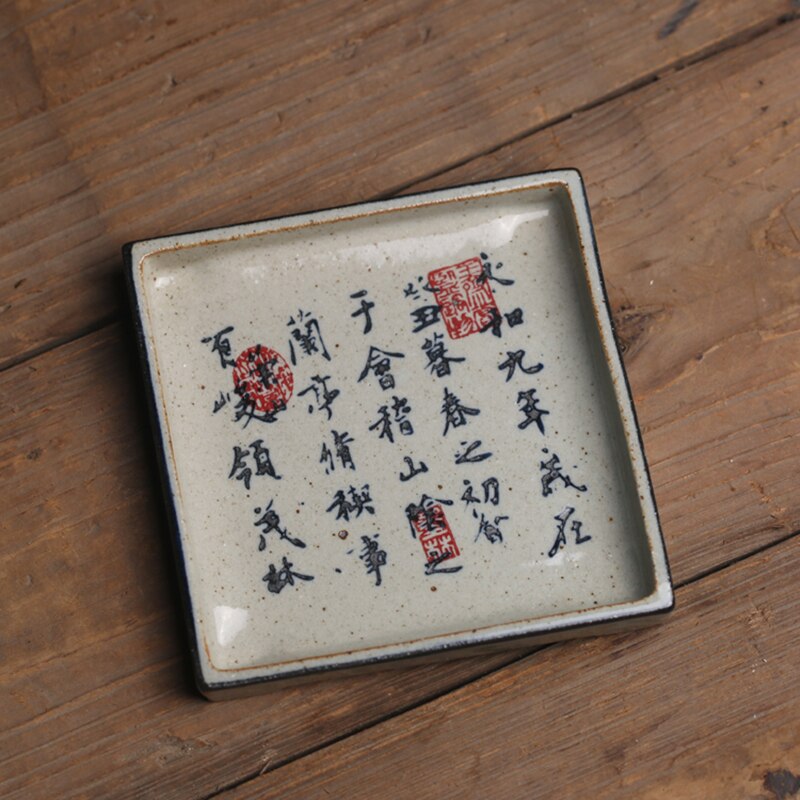 永和九年歲在
癸丑暮春之初會
于會稽山陰之
蘭亭脩稧事
有峻領茂林